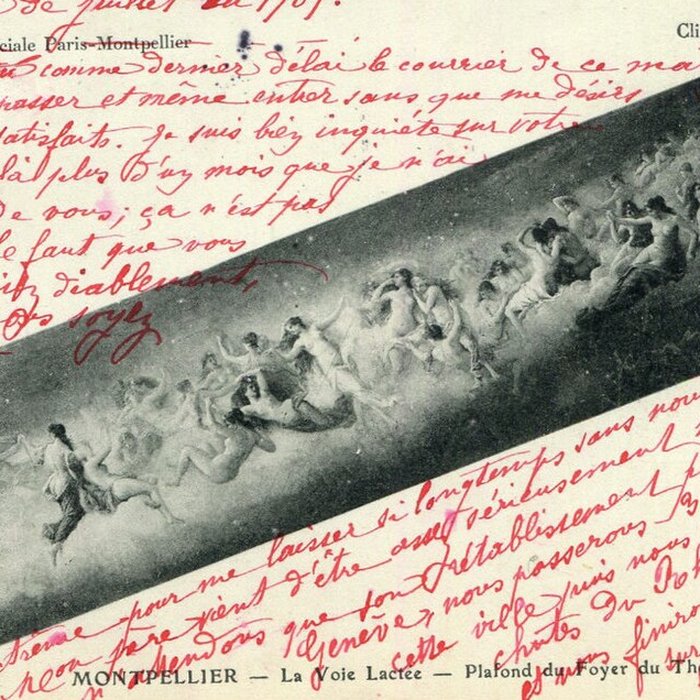 de juillet
ciale Paris-Montpellier
Cli
comme dernier délai le courrier de ce ma
passer et même entier sans que me désirs
satisfaits. Je suis bien inquiète sur votre
là plus d'un mois que je n'ai
de vous; ça n'est pas
le faut que vous
diablement,
soyez
pour me laisser si longtemps sans nou
mon père vient d'être assez sérieusement
attendons que son rétablissement
Genève, nous passerons
cette ville puis nous
chutes du Rh
nous finir
sur
MONTPELLIER — La Voie Lactée — Plafond du Foyer du Th